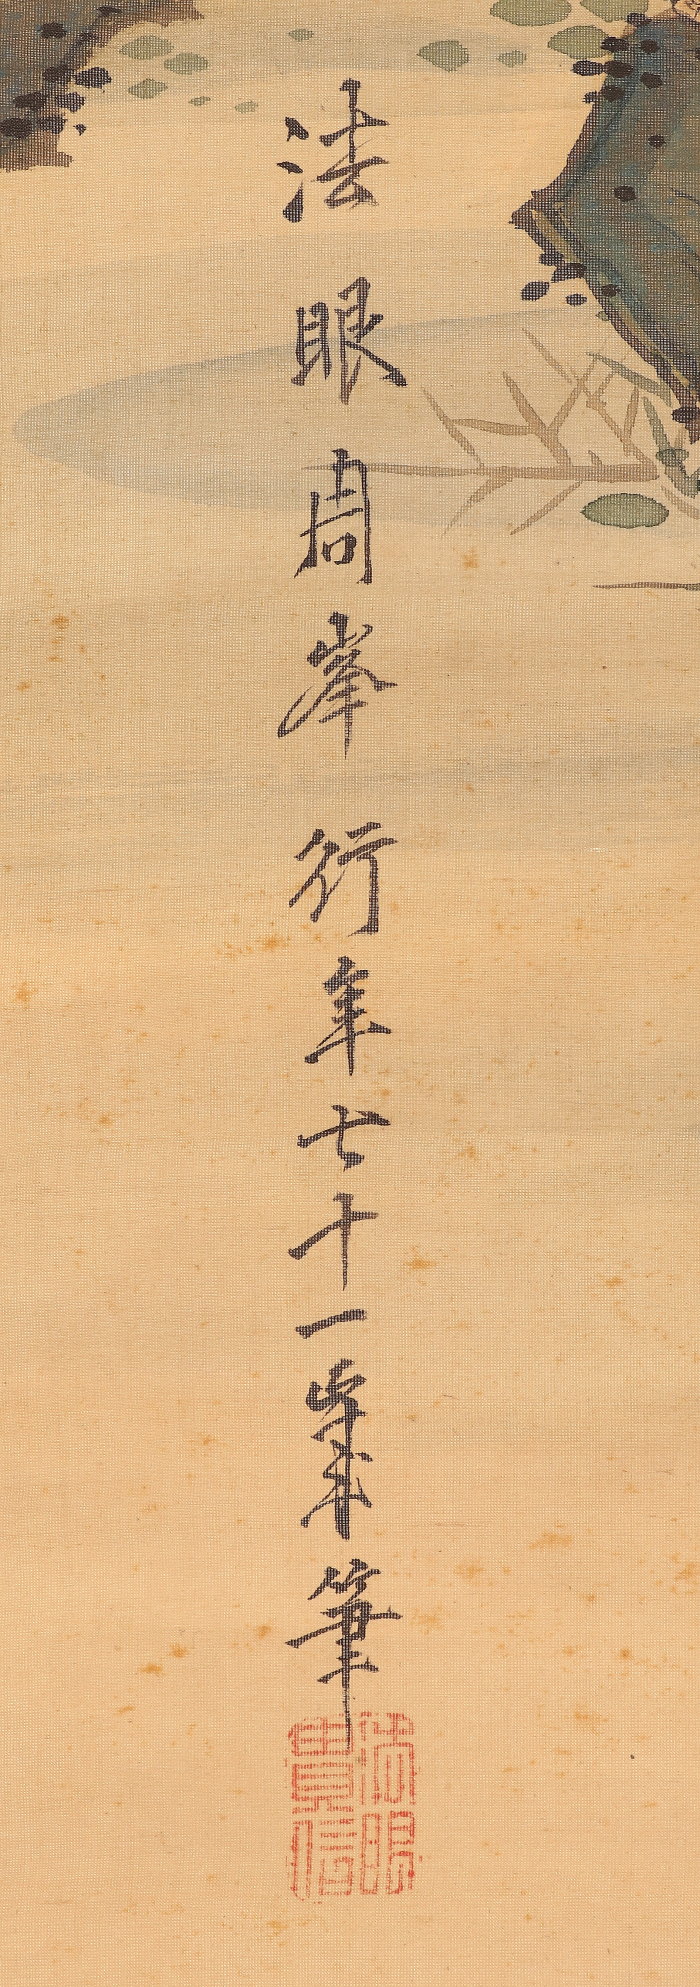 法眼周峯行年七十一歳筆
法眼
貴信